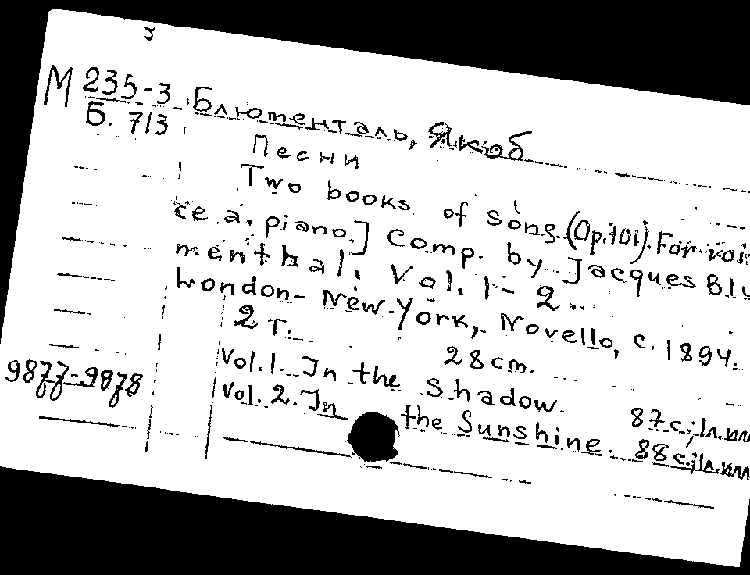 М 235-3 Блюменталь, Якоб
Б. 713
Песни
Two books of song (Op. 101). For voi
ce a. piano.] Comp. by Jacques Blu
menthal. Vol. 1-2..
London-New-York, Novello, c. 1894.
2 т. 28 cm.
Vol. 1. In the Shadow. 87 с.; 1л. илл
Vol. 2. In the Sunshine. 88 с.; 1л. илл
9877-9878